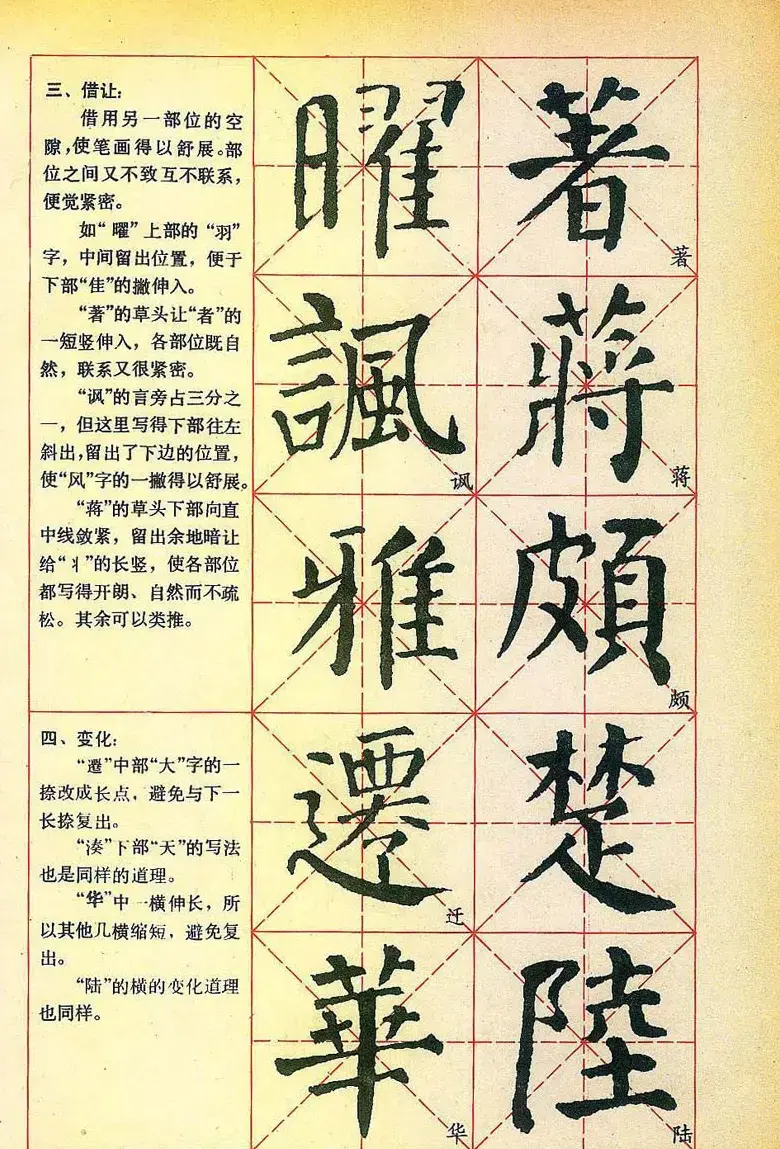 三、借让:
借用另一部位的空
隙,使笔画得以舒展。部
位之间又不致互不联系,
便觉紧密。
如“曜”上部的“羽”
字,中间留出位置,便于
下部“隹”的撇伸入。
“著”的草头让“者”的
一短竖伸入,各部位既自
然,联系又很紧密。
“讽”的言旁占三分之
一,但这里写得下部往左
斜出,留出了下边的位置,
使“风”字的一撇得以舒展。
“蒋”的草头下部向直
中线敛紧,留出余地暗让
给“丬”的长竖,使各部位
都写得开朗、自然而不疏
松。其余可以类推。
四、变化:
“遷”中部“大”字的一
捺改成长点,避免与下一
长捺复出。
“凑”下部“天”的写法
也是同样的道理。
“华”中一横伸长,所
以其他几横缩短,避免复
出。
“陆”的横的变化道理
也同样。
著
著
蔣
蒋
頗
颇
楚
陸
陆
曜
諷
讽
雅
遷
迁
華
华